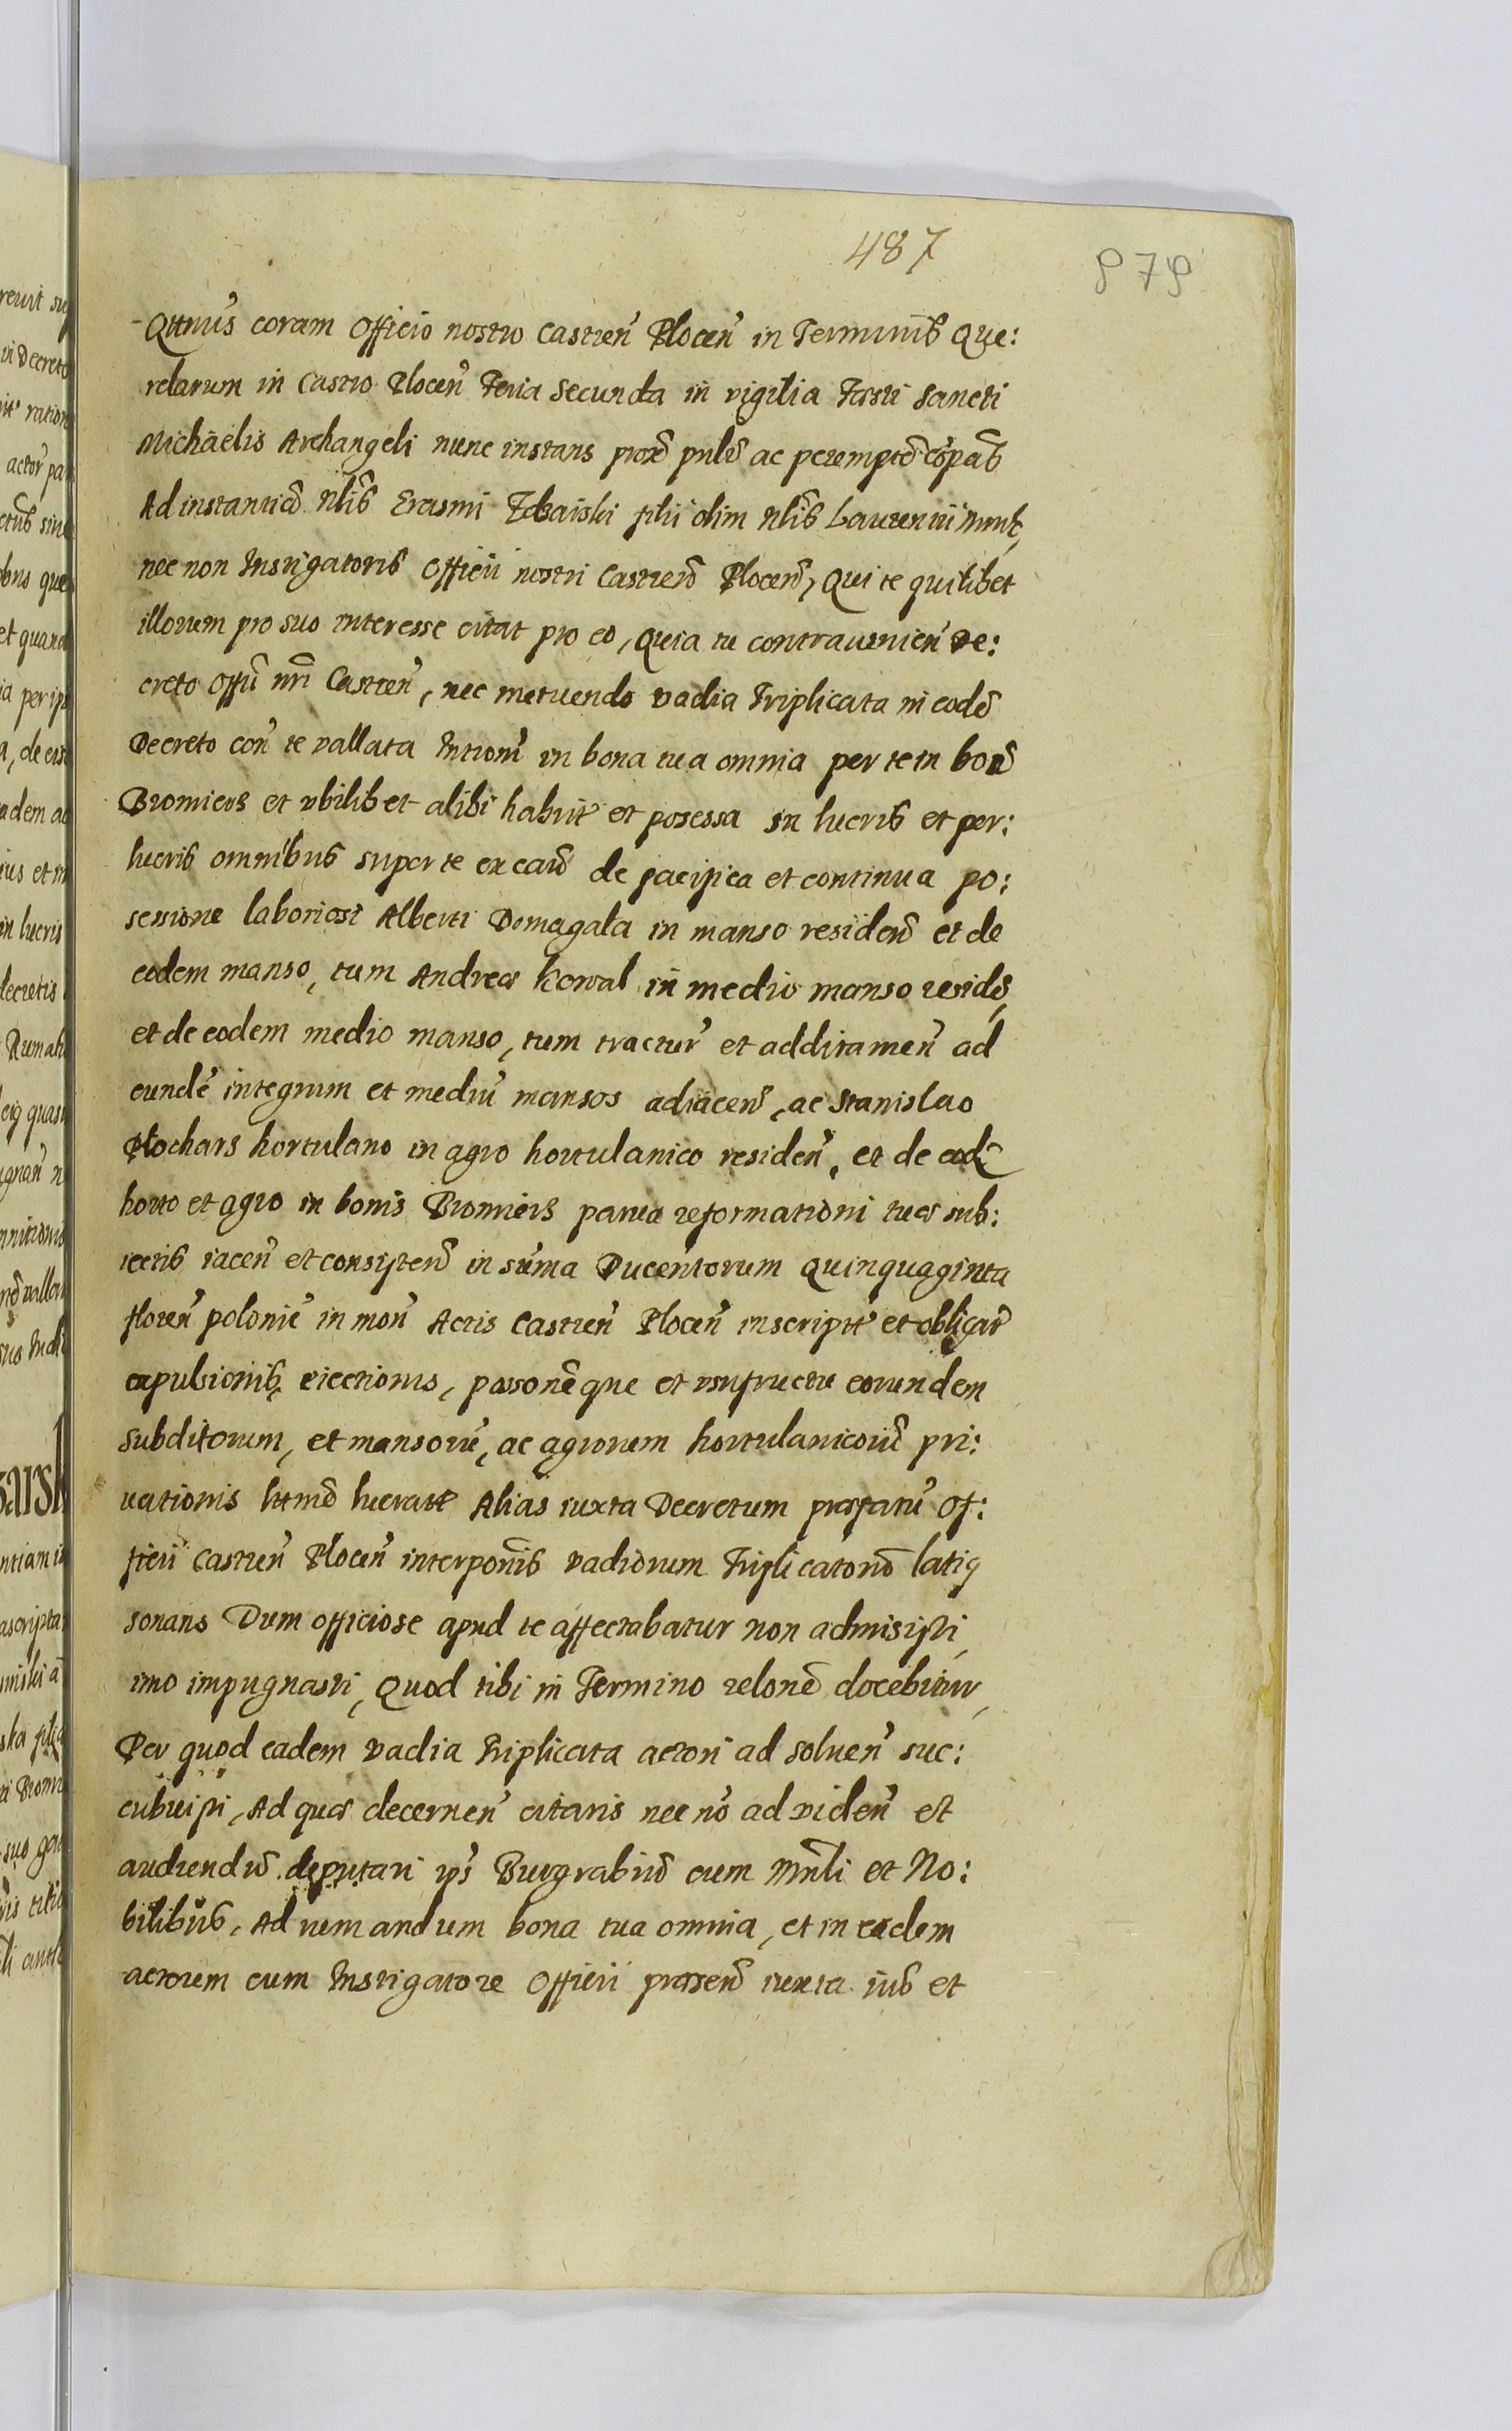 487
979
Qttnus coram Officio nostro Castren Plocen in Terminis Que:
relarum in Castro Plocen Feria Secunda in vigilia Festi Sancti
Michaelis Archangeli nunc instans prox pnlr ac perempto cōpās
Ad instantiā Nlis Erasmi filii olim Nlis Laurentii
nec non Instigatoris Officii nostri Castren Plocen, Qui te quilibet
illorum pro suo interesse citat pro eo, Quia tu contravenien De:
creto Offii nri Castren, nec metuendo vadia Triplicata in eodē
Decreto con te vallata Introm in bona tua omnia per te in bonis
Bromierz et vbilibet alibi habit et posessa in lucris et per:
lucris omnibus super te ex caus de pacifica et continua po:
sessione laboriosi Alberti Domagala in manso residen et de
eodem manso, tum Andreæ Kowal in medio manso residē,
et de eodem medio manso, tum tractur et additamen ad
eundē integrum et mediū mansos adiacen, ac Stanislao
Plochars hortulano in agro hortulanico residen, et de eodē
horto et agro in bonis Bromierz parua reformationi tuæ sub:
iectis iacen et consisten in sūma Ducentorum Quinquaginta
floren polonie in mon Actis Castren Plocen inscript et obligat
expulsionis, eiectionis, possonēque et vsufructu eorundem
subditorum, et mansorū, ac agrorum hortulanicorū pri:
uationis lucrat Alias iuxta Decretum præfatū Of:
ficii Castren Plocen interponis vadiorum Triplicatorū latiq
sonans Dum officiose apud te affectabatur non admisisti,
imo impugnasti, Quod tibi in Termino relonē docebitur,
Per quod eadem vadia Triplicata actori ad soluen suc:
cubuisti, Ad quæ decernen citaris nec nō ad viden et
audiendū deputari Burgrabiū cum Mnli et No:
bilibus, Ad numandum bona tua omnia, et in eadem
actorem cum Instigatore Officii præsen iuxta ius et